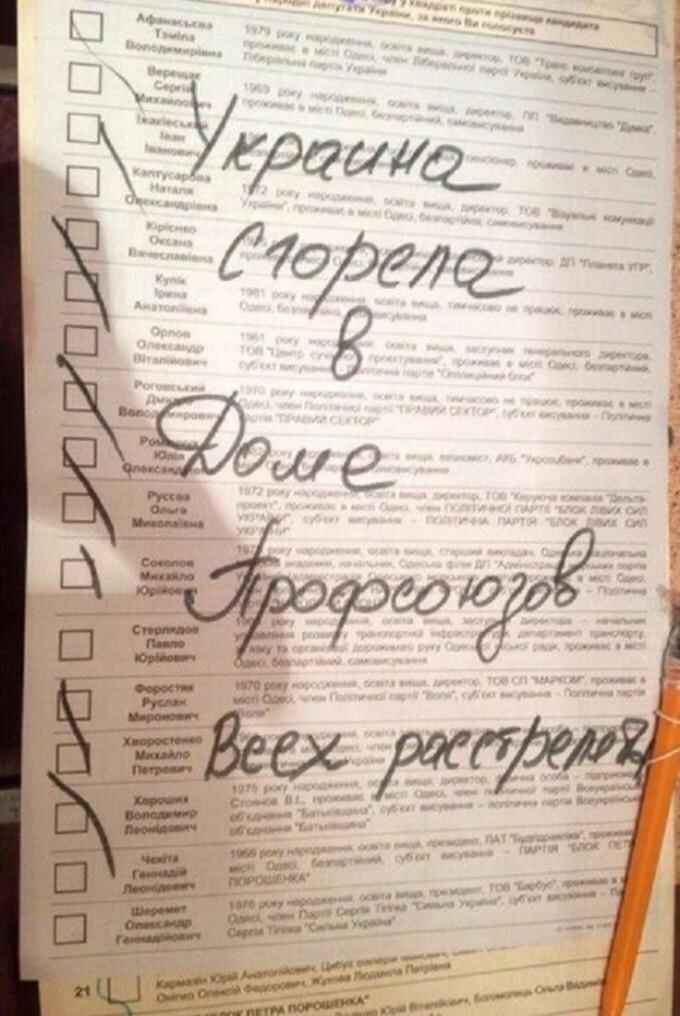 у квадраті проти прізвища кандидата
депутати України, за якого Ви голосуєте
Афанасьєва
Таміла
Володимирівна
1979 року народження, освіта вища, директор, ТОВ "Транс консалтинг груп",
проживає в місті Одесі, член Ліберальної партії України, суб'єкт висування –
Ліберальна партія України
Верещак
Сергій
Михайлович
1969 року народження, освіта вища, директор, ПП "Видавництво "Думка",
проживає в місті Одесі, безпартійний, самовисування
Іван
Іванович
пенсіонер, проживає в місті Одесі,
Каптусарова
Наталя
Олександрівна
1972 року народження, освіта вища, директор, ТОВ "Візуальні комунікації
України", проживає в місті Одесі, безпартійна, самовисування
Кірієнко
Оксана
Вячеславівна
директор, ДП "Планета УПР",
Кулік
Ірина
Анатоліївна
1981 року народження, освіта вища, тимчасово не працює, проживає в місті
Одесі, самовисування
Орлов
Олександр
Віталійович
1961 року народження, освіта вища, заступник генерального директора,
ТОВ "Центр проектування", проживає в місті Одесі, безпартійний,
суб'єкт висування – політична партія "Опозиційний блок"
Роговський
Володимирович
1970 року народження, освіта вища, тимчасово не працює, проживає в місті
Одесі, член Політичної партії "ПРАВИЙ СЕКТОР", суб'єкт висування – Політична
партія "ПРАВИЙ СЕКТОР"
Юлія
освіта вища, економіст, АКБ "Укрсоцбанк", проживає в
самовисування
Руссва
Ольга
Миколаївна
1972 року народження, освіта вища, директор, ТОВ "Керуюча компанія "Дельта-
проект", проживає в місті Одесі, член ПОЛІТИЧНОЇ ПАРТІЇ "БЛОК ЛІВИХ СИЛ
УКРАЇНИ", суб'єкт висування – ПОЛІТИЧНА ПАРТІЯ "БЛОК ЛІВИХ СИЛ
УКРАЇНИ"
Соколов
Михайло
Юрійович
року народження, освіта вища, старший викладач, Одеська національна
академія, начальник, Одеська філія ДП "Адміністрація морських портів
Стерлядов
Павло
Юрійович
року народження, освіта вища, заступник директора – начальник
управління розвитку транспортної інфраструктури, департамент транспорту,
зв'язку та організації дорожнього руху Одеської міської ради, проживає в місті
Одесі, безпартійний, самовисування
Форостяк
Руслан
Миронович
1970 року народження, освіта вища, директор, ТОВ СП "МАРКОМ", проживає в
місті Одесі, член Політичної партії "Воля", суб'єкт висування – Політична партія
"Воля"
Хворостенко
Михайло
Петрович
Хороших
Володимир
Леонідович
1975 року народження, освіта вища, директор, фізична особа – підприємець
Стоянов В.І., проживає в місті Одесі, член політичної партії Всеукраїнське
об'єднання "Батьківщина", суб'єкт висування – політична партія Всеукраїнське
об'єднання "Батьківщина"
Чекіта
Геннадій
Леонідович
1966 року народження, освіта вища, президент, ПАТ "Будгідравліка", проживає
місті Одесі, безпартійний, суб'єкт висування – ПАРТІЯ "БЛОК ПЕТРА
ПОРОШЕНКА"
Шеремет
Олександр
Геннадійович
1976 року народження, освіта вища, президент, ТОВ "Барбус", проживає в
Одесі, член Партії Сергія Тігіпка "Сильна Україна", суб'єкт висування –
Сергія Тігіпка "Сильна Україна"
Украина
сгорела
в
Доме
Профсоюзов
Всех расстрелять
21
Кармазін Юрій Анатолійович,
Оніпко Олексій Федорович, Жукова Людмила Петрівна
БЛОК ПЕТРА ПОРОШЕНКА"
Юрій Віталійович, Богомолець Ольга